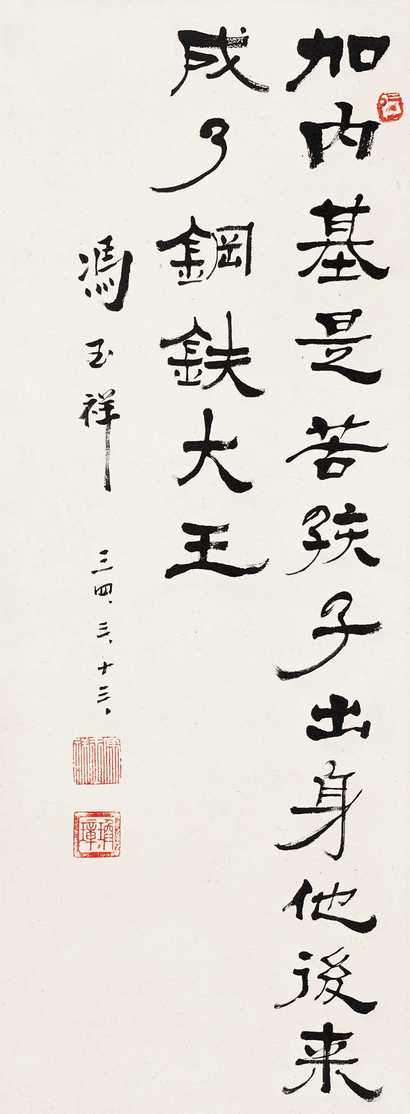 加內基是苦孩子出身他後来
成了鋼鉄大王
馮玉祥
三四、三、十三、